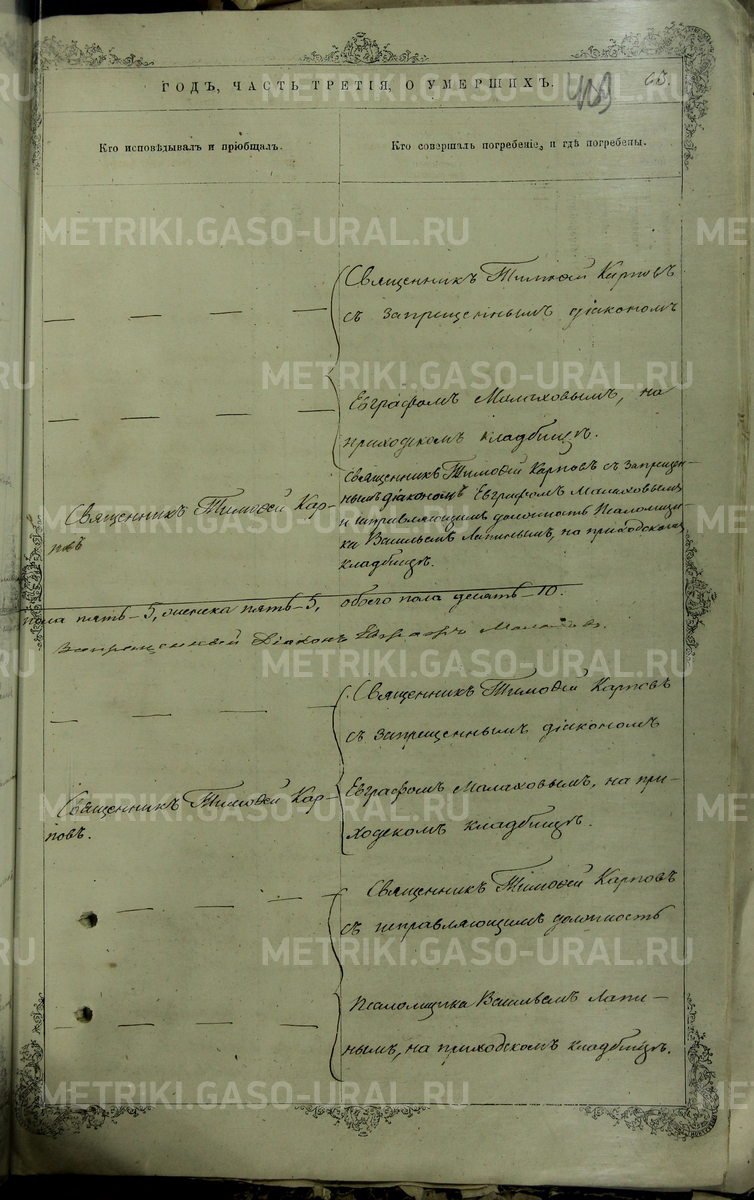 ГОДЪ, ЧАСТЬ ТРЕТІЯ, О УМЕРШИХЪ.
63.
Кто исповѣдывалъ и пріобщалъ.
Кто совершалъ погребеніе, и гдѣ погребены.
Священникъ Тимоѳей Карповъ
съ запрещеннымъ діакономъ
Евграфомъ Малаховымъ, на
приходскомъ кладбищѣ.
Священникъ Тимоѳей Кар-
повъ
Священникъ Тимоѳей Карповъ съ запрещен-
нымъ діакономъ Евграфомъ Малаховымъ
и исправляющимъ должность Псаломщи-
ка Васильемъ Лапинымъ, на приходскомъ
кладбищѣ.
пола пять-5, женска пять-5, обоего пола десять-10.
Запрещенный Діаконъ Евграфъ Малаховъ.
Священникъ Тимоѳей Карповъ
съ запрещеннымъ діакономъ
Евграфомъ Малаховымъ, на при-
ходскомъ кладбищѣ.
Священникъ Тимоѳей Кар-
повъ.
Священникъ Тимоѳей Карповъ
съ исправляющимъ должность
Псаломщика Васильемъ Лапи-
нымъ, на приходскомъ кладбищѣ.
METRIKI.GASO-URAL.RU